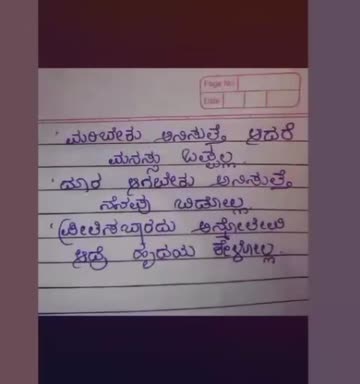 Page No.
Date
' ಮರಿಬೇಕು ಅನಿಸುತ್ತೆ ಆದರೆ
ಮನಸ್ಸು ಒಪ್ಪಲ್ಲ.
' ದೂರ ಆಗಬೇಕು ಅನಿಸುತ್ತೆ
ನೆನಪು ಬಿಡೋಲ್ಲ.
' ಪ್ರೀತಿಸಬಾರದು ಅನ್ಕೋತೀನಿ
ಆದ್ರೆ ಹೃದಯ ಕೇಳೋಲ್ಲ.